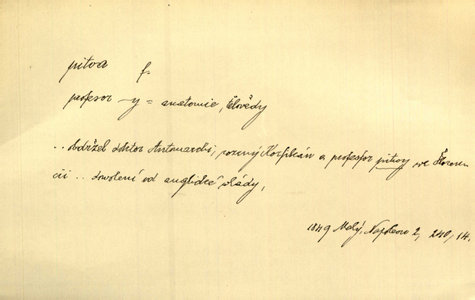 pitva f.
profesor -y = anatomie, člověky
.. obdržel doktor Antomarchi, rozený Korsikán a profesor pitvy ve Floren-
cii ... dovolení od anglické vlády,
1849 Malý, Napoleon 2, 240, 14.